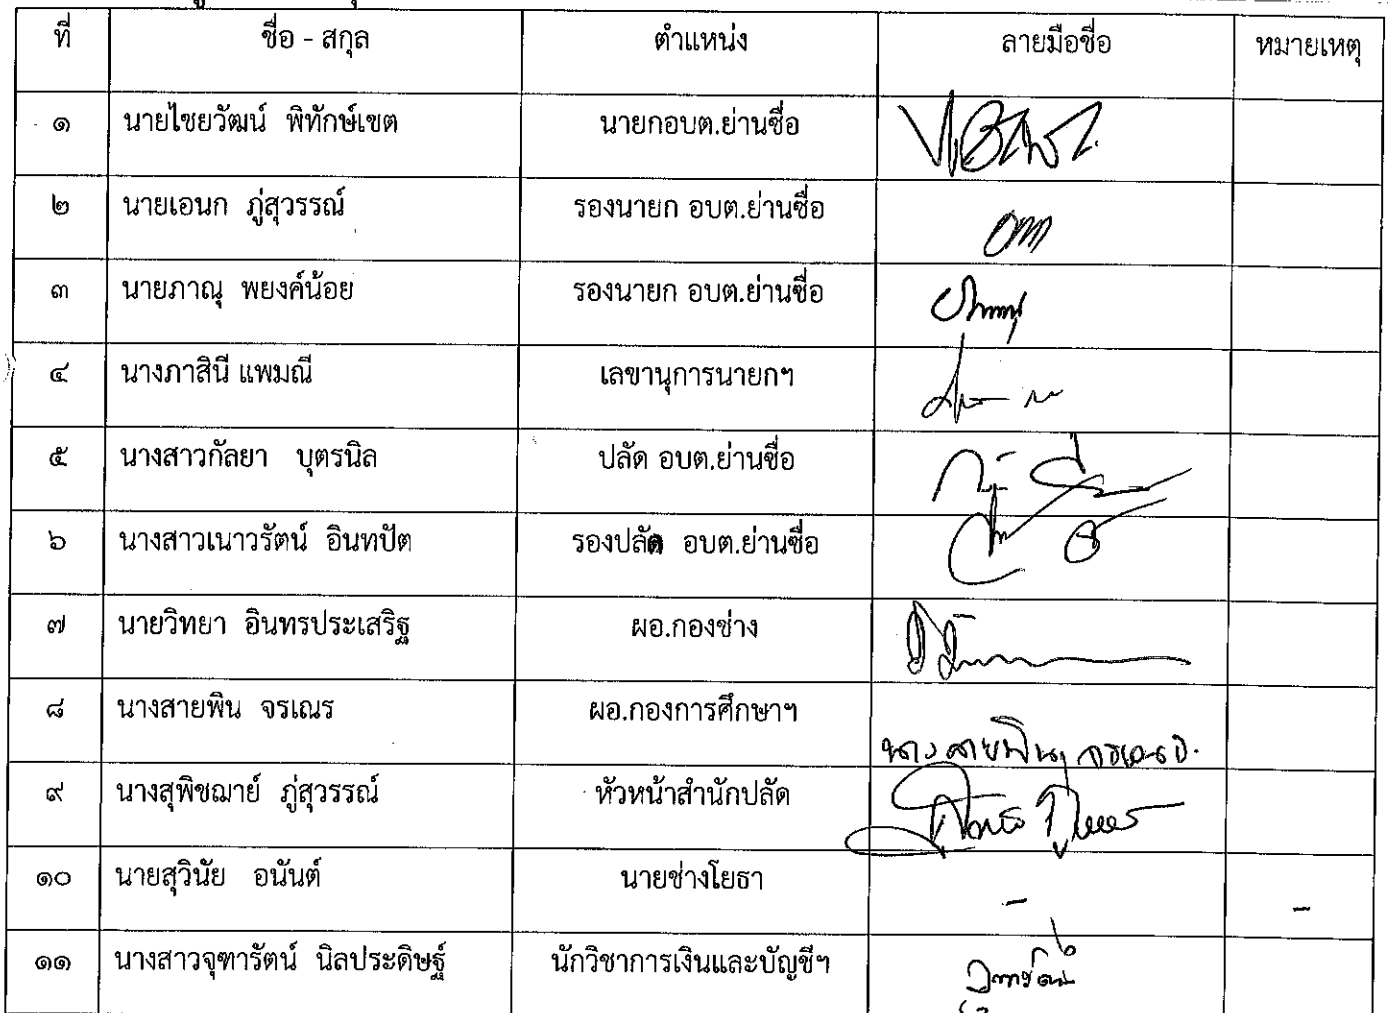 ที่ ชื่อ - สกุล ตำแหน่ง ลายมือชื่อ หมายเหตุ
๑ นายไชยวัฒน์ พิทักษ์เขต นายกอบต.ย่านซื่อ
๒ นายเอนก ภู่สุวรรณ์ รองนายก อบต.ย่านซื่อ
๓ นายภาณุ พยงค์น้อย รองนายก อบต.ย่านซื่อ
๔ นางภาสินี แพมณี เลขานุการนายกฯ
๕ นางสาวกัลยา บุตรนิล ปลัด อบต.ย่านซื่อ
๖ นางสาวเนาวรัตน์ อินทปัต รองปลัด อบต.ย่านซื่อ
๗ นายวิทยา อินทรประเสริฐ ผอ.กองช่าง
๘ นางสายพิน จรเณร ผอ.กองการศึกษาฯ นางสายพิน จรเณร
๙ นางสุพิชฌาย์ ภู่สุวรรณ์ หัวหน้าสำนักปลัด
๑๐ นายสุวินัย อนันต์ นายช่างโยธา - -
๑๑ นางสาวจุฑารัตน์ นิลประดิษฐ์ นักวิชาการเงินและบัญชีฯ จุฑารัตน์